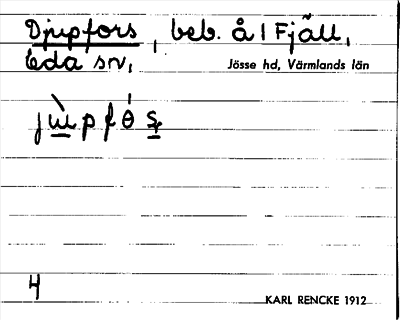 Djupfors, beb. å 1 Fjäll,
Eda sn,
Jösse hd, Värmlands län
4
KARL RENCKE 1912